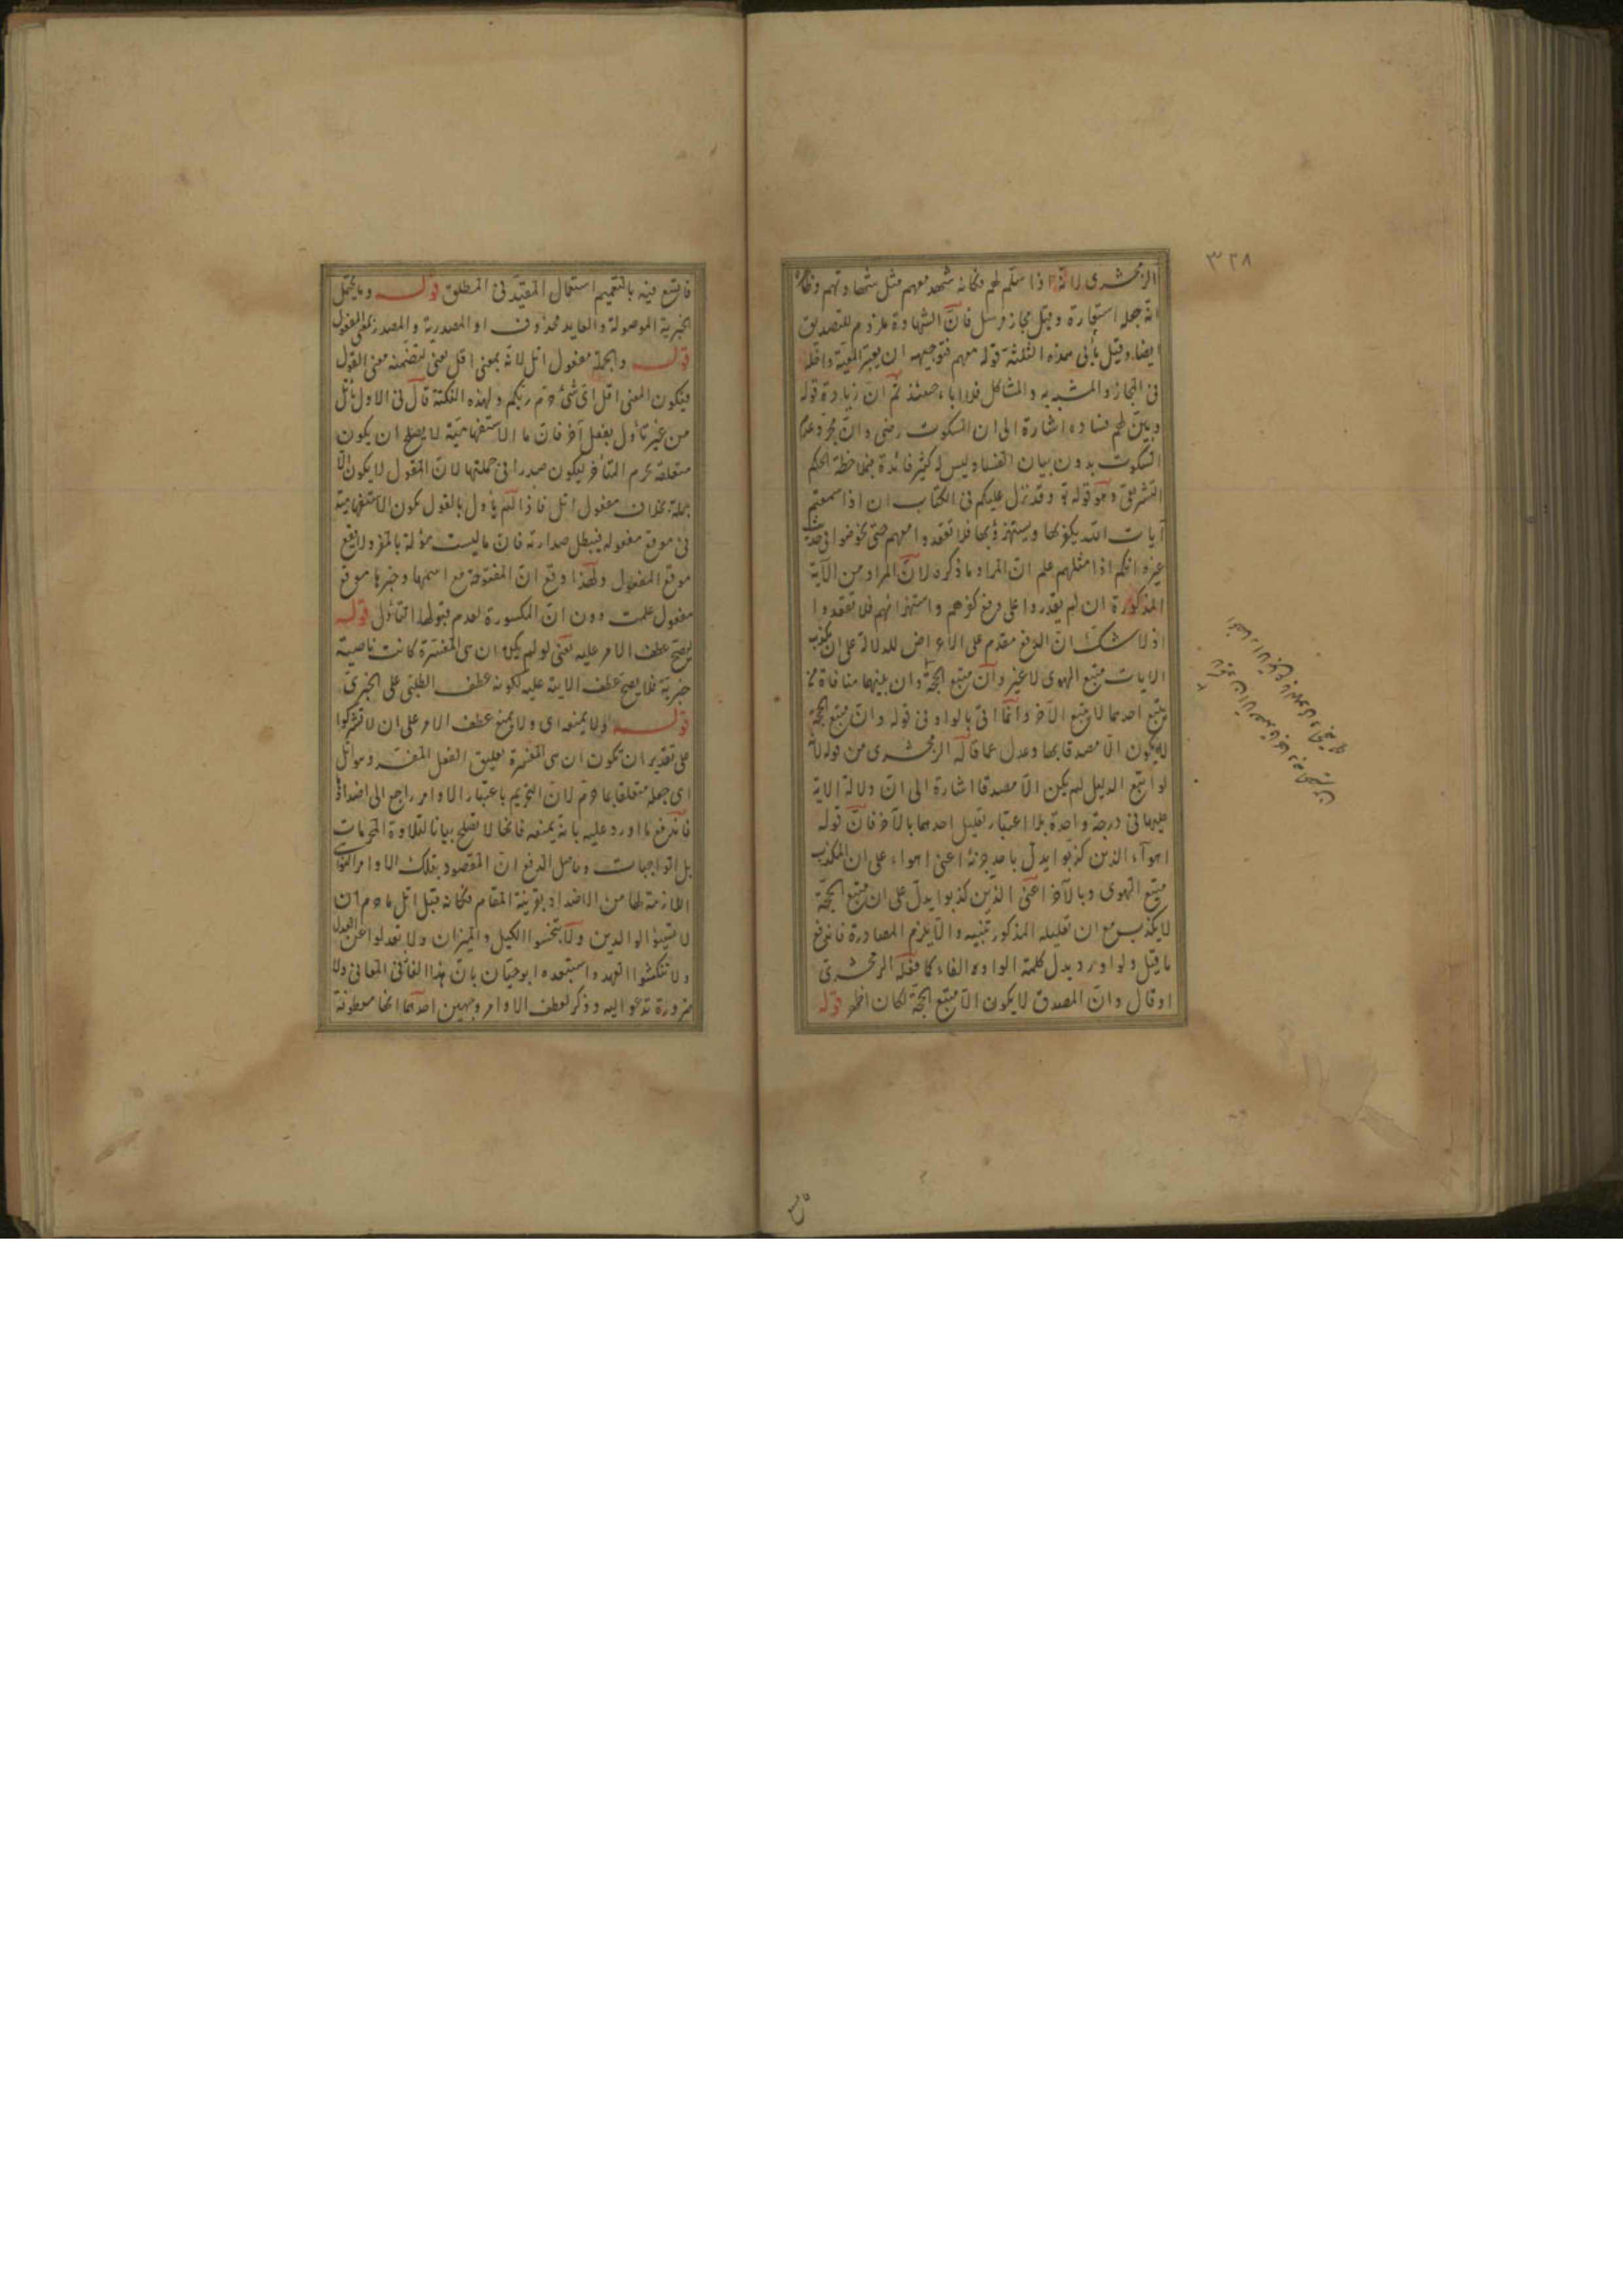 ٣٢٨
الزمخشرى لانه اذا سلم لهم فكانه شهد معهم مثل شهادتهم وظاهر
انه جعله استعارة وقيل مجاز مرسل فانّ الشهادة ملزوم للتصديق
ايضا وقيل يأبى هذه الثلثة قوله معهم فتوجيهه ان يعتبر المعية داخلة
فى المجاز والمشبه به والمشاكل فلا اباء حينئذ ثم ان زيادة قوله
وبين لهم فساده اشارة الى ان السكوت رضى وان مجرد عدم
السكوت بدون بيان الفساد ليس له كثير فائدة فملاحظة الحكم
الشرعى وهو قوله تع وقد نزل عليكم فى الكتاب ان اذا سمعتم
آيات الله يكفر بها ويستهزؤ بها فلا تقعدوا معهم حتى يخوضوا فى حديث
غيره انكم اذا مثلهم علم ان المراد ما ذكره لانّ المراد من الآية
المذكورة ان لم يقدروا على دفع كفرهم واستهزائهم فلا تقعدوا
اذ لا شك ان الدفع مقدم على الاعراض للدلالة على ان مكذب
الايات متبع الهوى لا غير وان متبع الحجة وان بينهما منافاة
يتبع احدهما لا يتبع الآخر وانما اتى بالواو فى قوله وان متبع الحجة
لا يكون الا مصدقا بها وعدل عما قاله الزمخشرى من قوله لانه
لو اتبع الدليل لم يكن الا مصدقا اشارة الى ان دلالة الاية
عليهما فى درجة واحدة بلا اعتبار تعليل احدهما بالآخر فانّ قوله
اهوآء الذين كذبوا يدل باحد جزئه اعنى اهواء على ان المكذب
متبع الهوى وبالآخر اعنى الذين كذبوا يدل على ان متبع الحجة
لا يكذب مع ان تعليله المذكور تنبيه والا يلزم المصادرة فاندفع
ما قيل ولو اورد بدل كلمة الواو الفاء كما فعله الزمخشرى
او قال وان المصدق لا يكون الا متبع الحجة لكان اظهر قوله
فاتسع فيه بالتعميم استعمال المقيد فى المطلق قوله وما يحتمل
الخبرية الموصولة والعايد محذوف او المصدرية والمصدر بمعنى المفعول
قوله والجملة مفعول اتل لانه بمعنى اقل يعنى لتضمنه معنى القول
فيكون المعنى اقل اى شئ حرم ربكم ولهذه النكتة قال فى الاول اتل
من غير تأول بفعل آخر فان ما الاستفهامية لا يصلح ان يكون
متعلقة بحرم المتأخر ليكون صدرا فى جملتها لان المقول لا يكون الا
جملة بخلاف مفعول اتل فاذا لم يأول بالقول يكون الاستفهامية
فى موقع مفعوله فيبطل صدارته فان ما ليست مؤلة بالمفرد لا يقع
موقع المفعول ولهذا وقع ان المفتوحة مع اسمها وخبرها موقع
مفعول علمت دون ان المكسورة لعدم قبولها التأول قوله
ليصح عطف الامر عليه يعنى لو لم يكن ان هى المفسرة كانت ناصبة
خبرية فلا يصح عطف الاية عليه لكونه عطف الطلبى على الخبرى
قوله ولا يمنعه اى ولا يمنع عطف الامر على ان لا تشركوا
على تقدير ان تكون ان هى المفسرة تعليق الفعل المفسر وهو اتل
اى جعله متعلقا بما حرم لان التحريم باعتبار الاوامر راجع الى اضدادها
فاندفع ما اورد عليه بانه يمنعه فانها لا تصلح بيانا لتلاوة المحرمات
بل الواجبات وحاصل الدفع ان المقصود بتلك الاوامر النواهى
اللازمة لها من الاضداد بقرينة المقام فكانه قيل اتل ما حرم ان
لا تسيئوا الوالدين ولا تبخسوا الكيل والميزان ولا تعدلوا عن العدل
ولا تنكثوا العهد واستبعده ابو حيان بان هذا الغاز فى المعانى ولا
ضرورة تدعو اليه وذكر لعطف الاوامر وجهين احدهما انها معطوفة